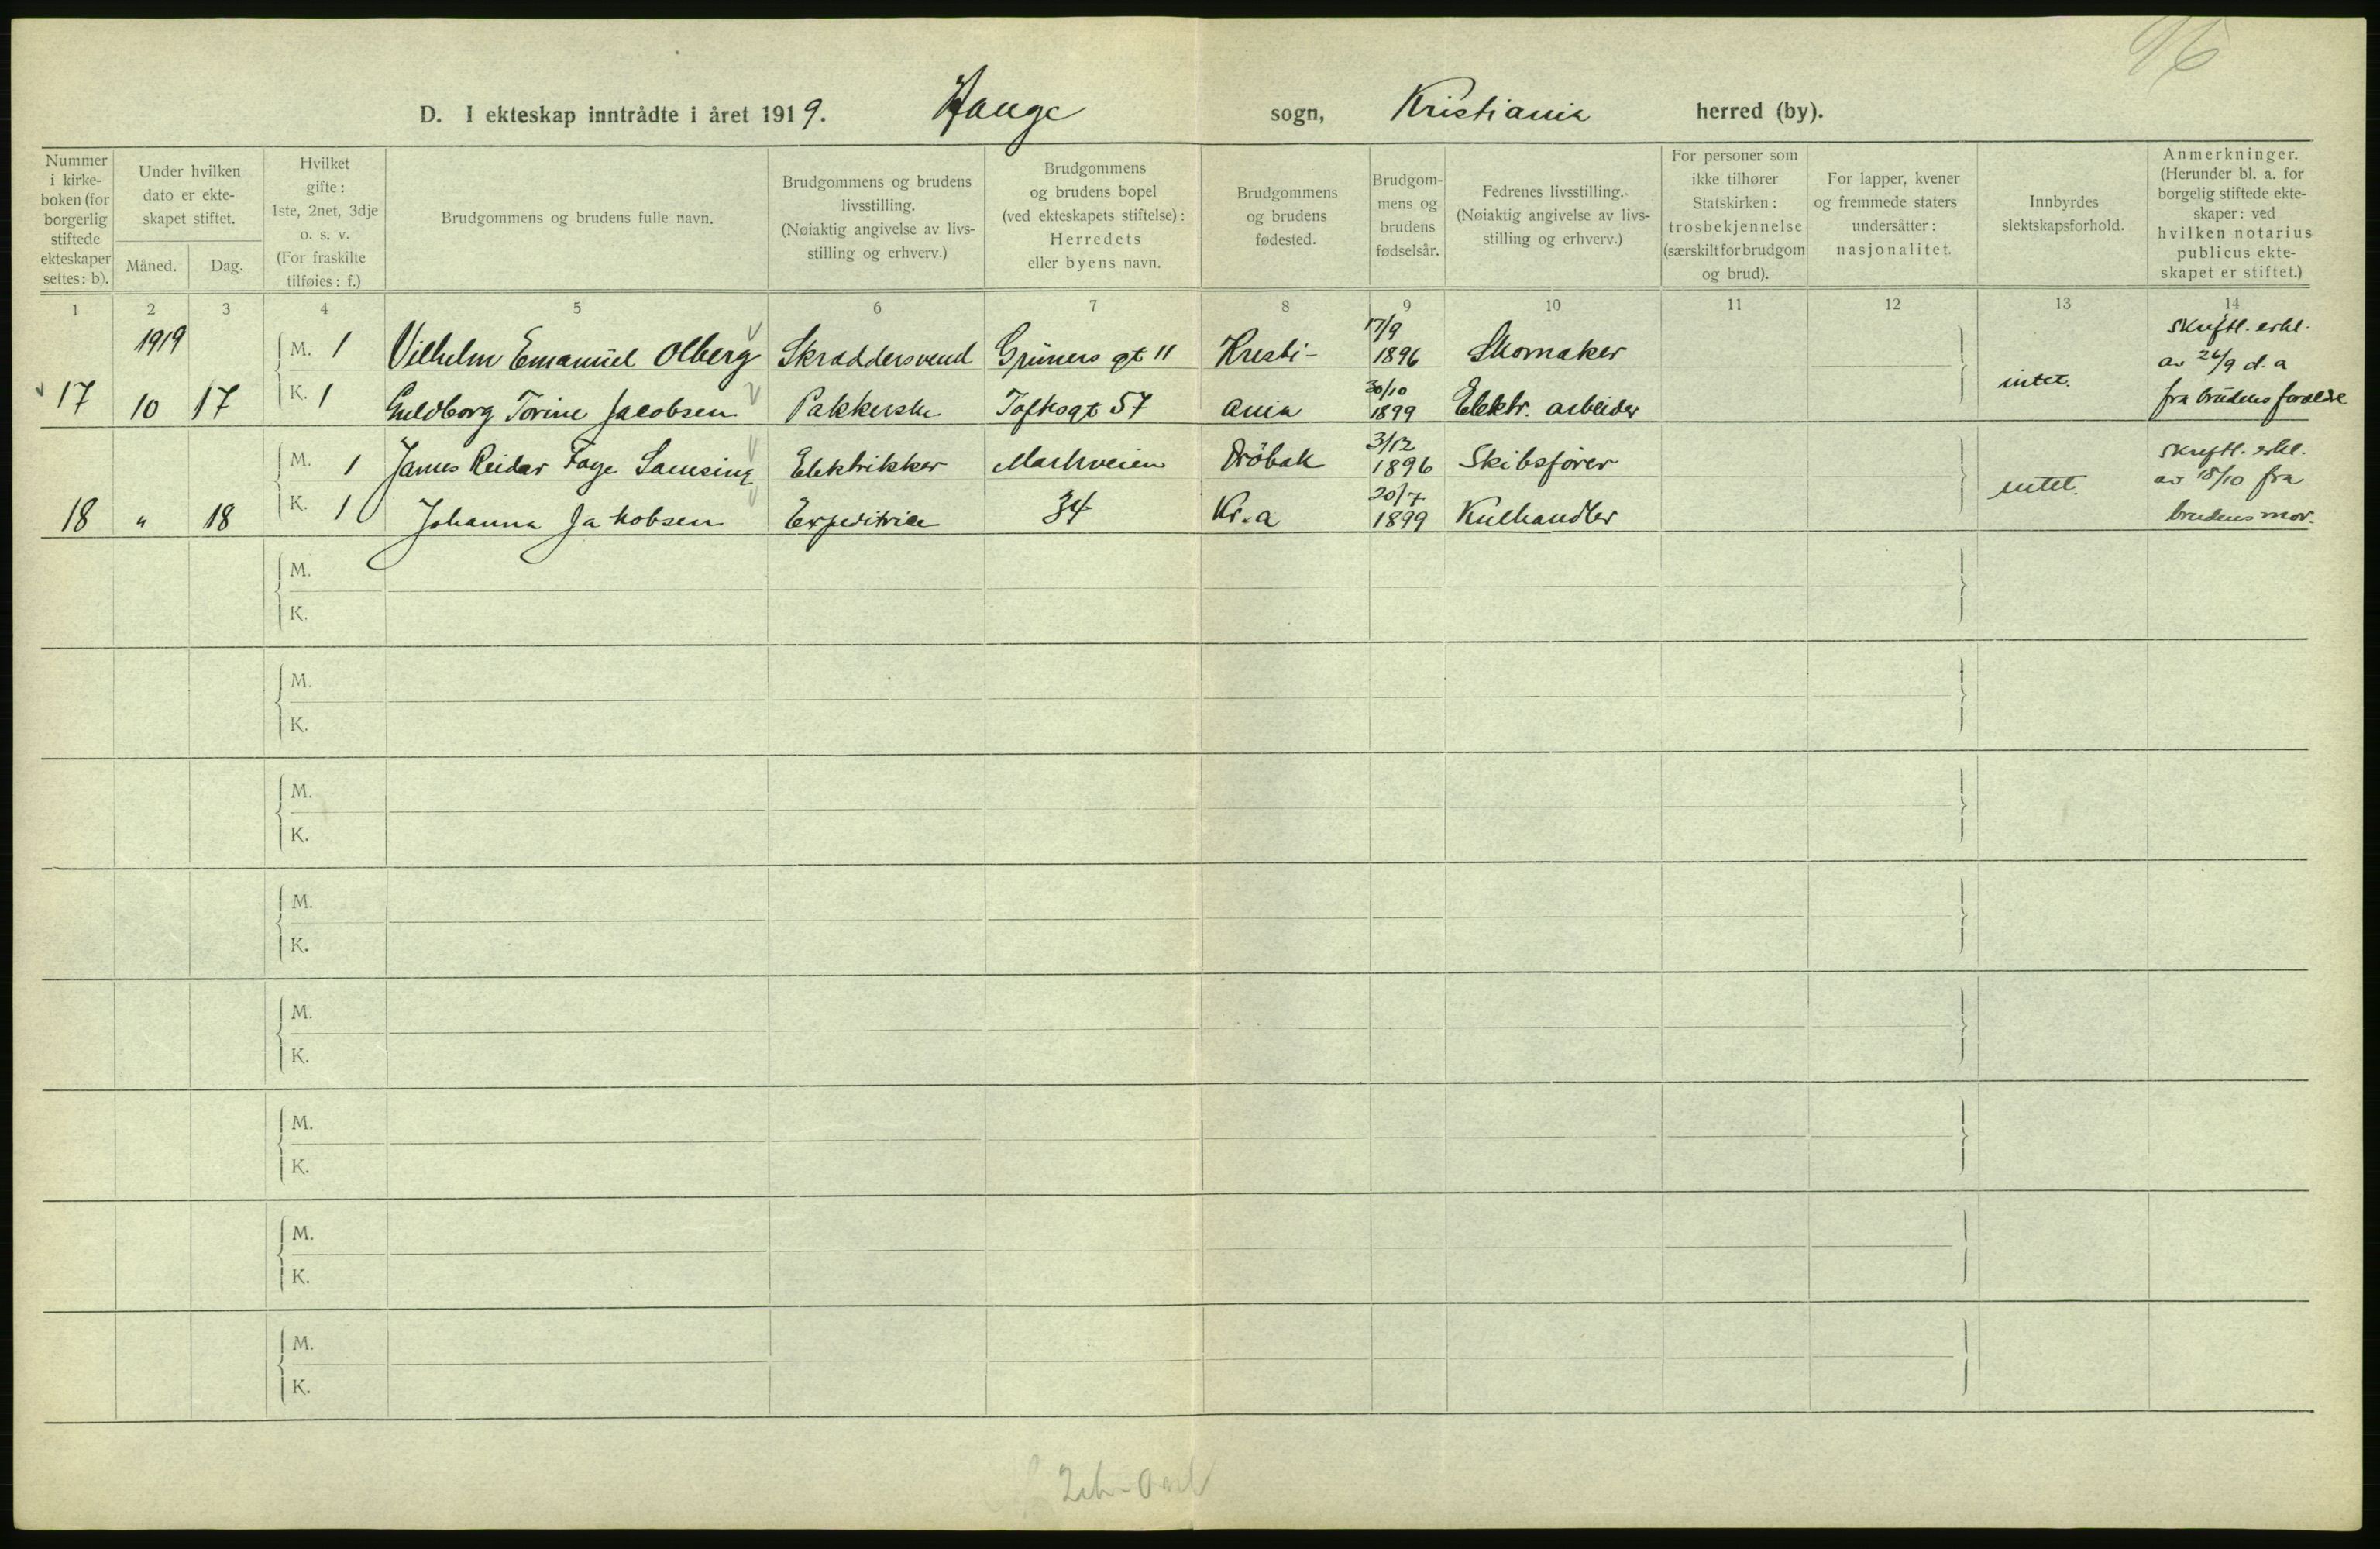 D. I ekteskap inntrådte i året 1919. Hauge sogn, Kristiania herred (by).
Nummer i kirke-boken (for borgerlig stiftede ekteskaper settes: b).
Under hvilken dato er ekte-skapet stiftet.
Måned. Dag.
Hvilket gifte: 1ste, 2net, 3dje o. s. v. (For fraskilte tilføies: f.)
Brudgommens og brudens fulle navn.
Brudgommens og brudens livsstilling. (Nøiaktig angivelse av livs-stilling og erhverv.)
Brudgommens og brudens bopel (ved ekteskapets stiftelse): Herredets eller byens navn.
Brudgommens og brudens fødested.
Brudgom-mens og brudens fødselsår.
Fedrenes livsstilling. (Nøiaktig angivelse av livs-stilling og erhverv.)
For personer som ikke tilhører Statskirken: trosbekjennelse (særskilt for brudgom og brud).
For lapper, kvener og fremmede staters undersåtter: nasjonalitet.
Innbyrdes slektskapsforhold.
Anmerkninger. (Herunder bl. a. for borgelig stiftede ekte-skaper: ved hvilken notarius publicus ekte-skapet er stiftet.)
1 2 3 4 5 6 7 8 9 10 11 12 13 14
1919 M. 1 Vilhelm Emanuel Olberg Skraddersvend Grüners gt 11 Kristi- 17/9 1896 Skomaker skriftl. erkl. av 24/9 d. a
17 10 17 K. 1 Guldborg Torine Jacobsen Pakkerske Toftesgt 57 ania 30/10 1899 Elektr. arbeider intet. fra brudens forældre
M. 1 James Reidar Faye Samsing Elektrikker Markveien Dröbak 3/12 1896 Skibsfører skriftl. erkl. av 15/10 fra
18 " 18 K. 1 Johanna Jakobsen Expeditrice 34 Kr.a 20/7 1899 Kulhandler intet. brudens mor.
M.
K.
M.
K.
M.
K.
M.
K.
M.
K.
M.
K.
M.
K.
M.
K.